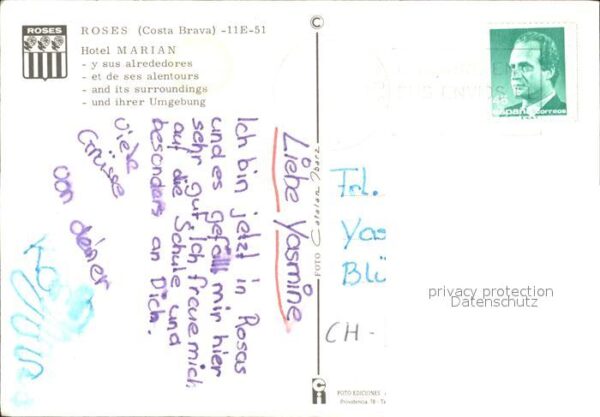 ROSES
ROSES (Costa Brava) -11E-51
Hotel MARIAN
- y sus alrededores
- et de ses alentours
- and its surroundings
- und ihrer Umgebung
Liebe Yasmine
Ich bin jetzt in Rosas
und es gefällt mir hier
sehr gut. Ich freue mich
auf die Schule und
besonders an Dich.
Viele
Grüsse
von deiner
C
FOTO
FOTO EDICIONES
España correos
Frl.
Yas
Blü
CH -
privacy protection
Datenschutz